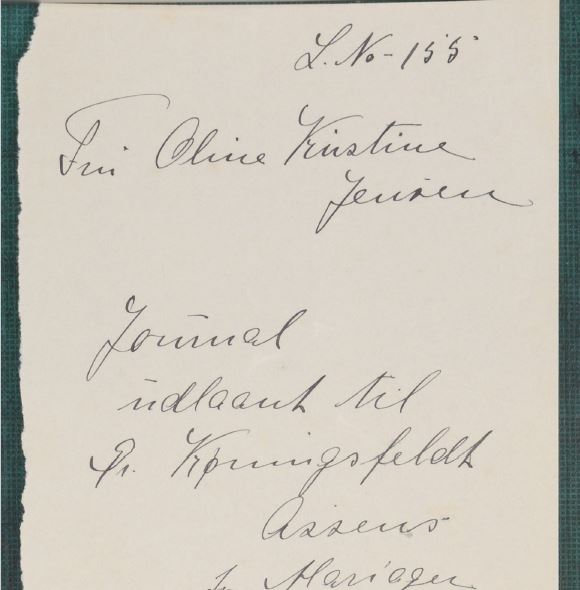 L. No - 155
Fru Oline Kristine
Jensen
Journal
udlaant til
Dr. Kønningsfeldt
Assens
pr. Mariager